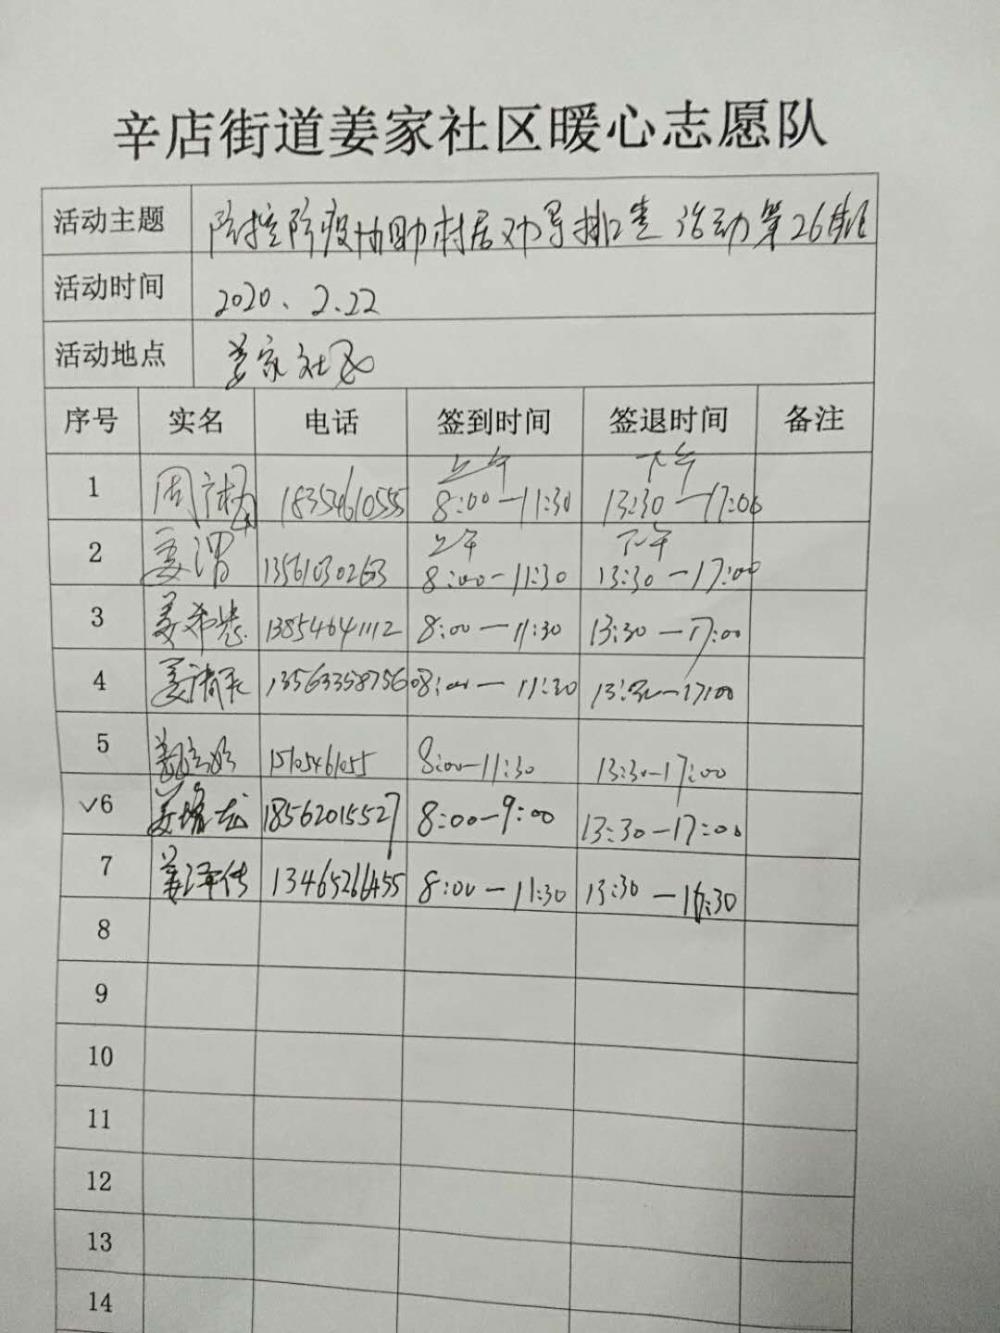 辛店街道姜家社区暖心志愿队
活动主题 防控防疫协助村居劝导排查活动第26班
活动时间 2020、2.22
活动地点 姜家社区
序号 实名 电话 签到时间 签退时间 备注
上午 下午
1 18354610555 8:00—11:30 13:30—17:00
上午 下午
2 姜 13561030263 8:00—11:30 13:30—17:00
3 姜希 13854641112 8:00—11:30 13:30—17:00
4 姜 13563358756 08:00—11:30 13:30—17:00
5 姜 8:00—11:30 13:30—17:00
√6 姜 18562015527 8:00—9:00 13:30—17:00
7 姜泽伟 13465266455 8:00—11:30 13:30—16:30
8
9
10
11
12
13
14